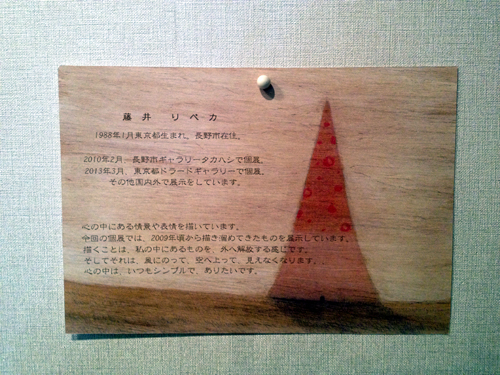 藤井 リベカ
1988年1月東京都生まれ。長野市在住。
2010年2月、長野市ギャラリータカハシで個展。
2013年3月、東京都ドラードギャラリーで個展。
その他国内外で展示をしています。
心の中にある情景や表情を描いています。
今回の個展では、2009年頃から描き溜めてきたものを展示しています。
描くことは、私の中にあるものを、外へ解放する感じです。
そしてそれは、風にのって、空へ上って、見えなくなります。
心の中は、いつもシンプルで、ありたいです。